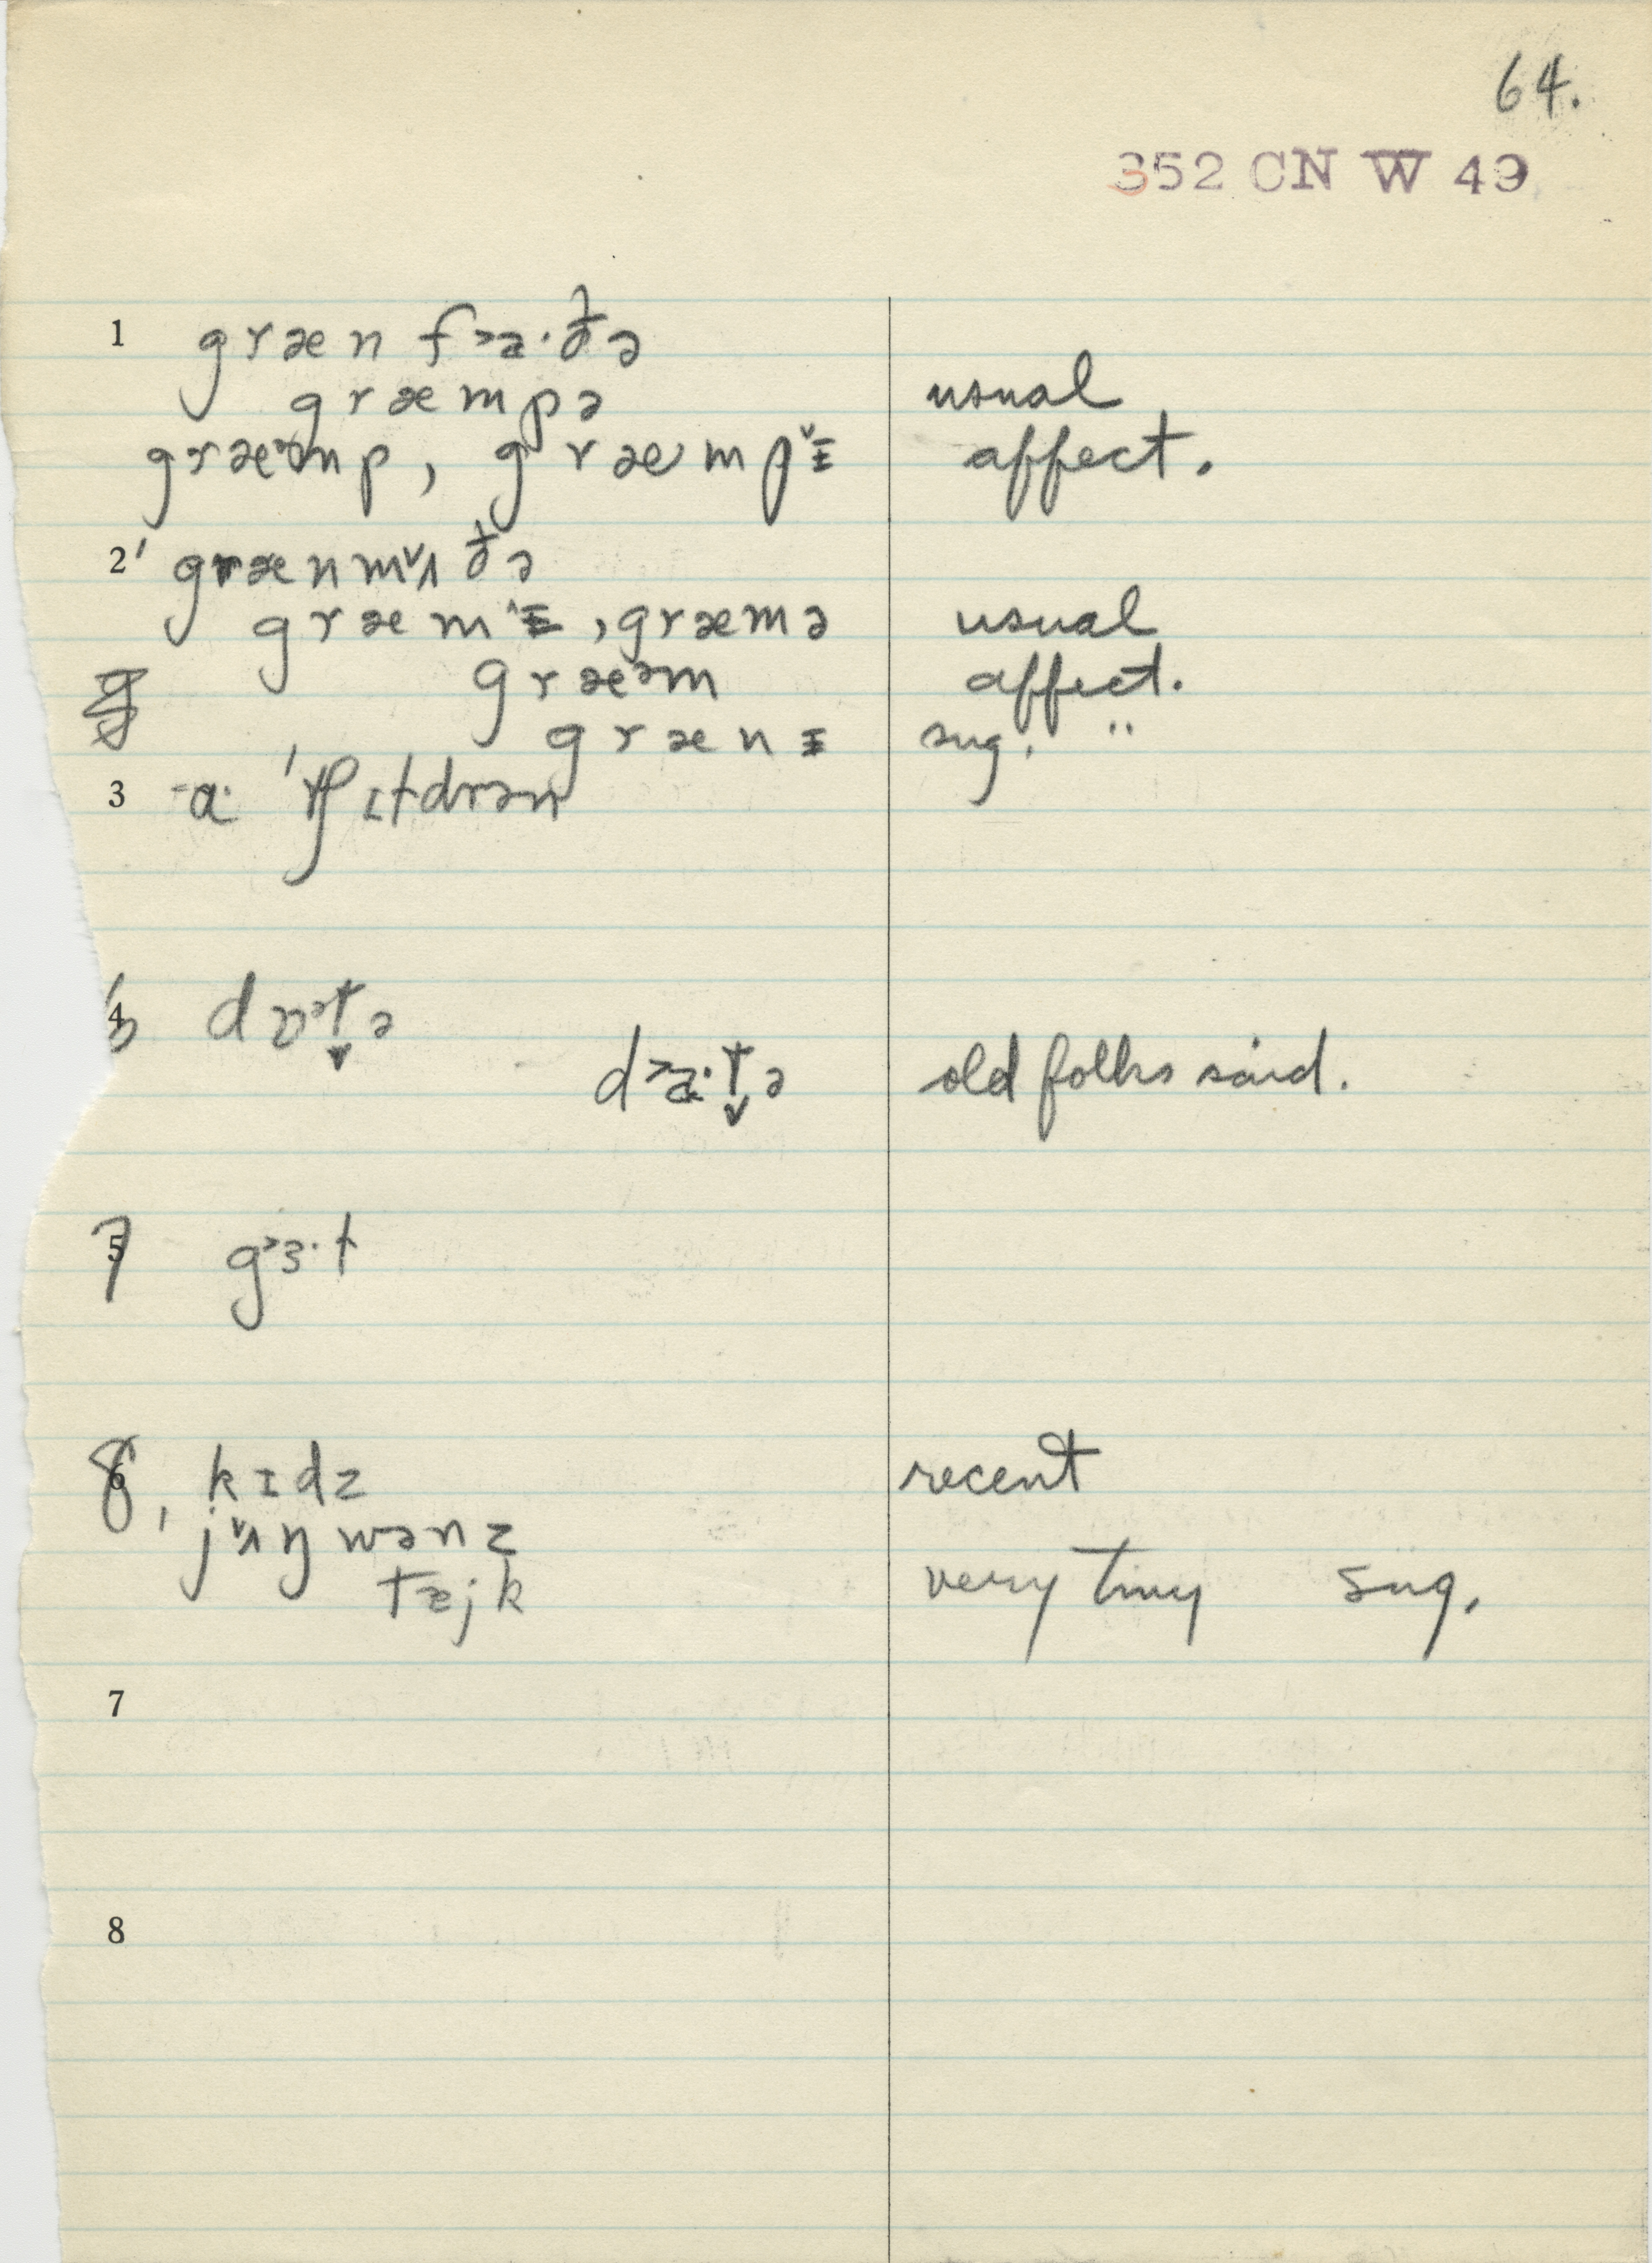 64.
352 CN W 49
1 græn f˃a·ðə
græmpə usual
græᵊmp, græmp˅ɪ affect.
2 ˈgrænm˅ʌðə
græm^ɪ, græmə usual
græᵊm affect.
grænɪ sug. "
3 -a· ˈtʃɪldrən
4 6 dɒᵊt̬ə
d˃a·t̬ə old folks said.
5 7 g˃ɜ·ɫ
6 8, kɪdz recent
ˈj˅ʌŋwənz
tæjk very tiny sug.
7
8